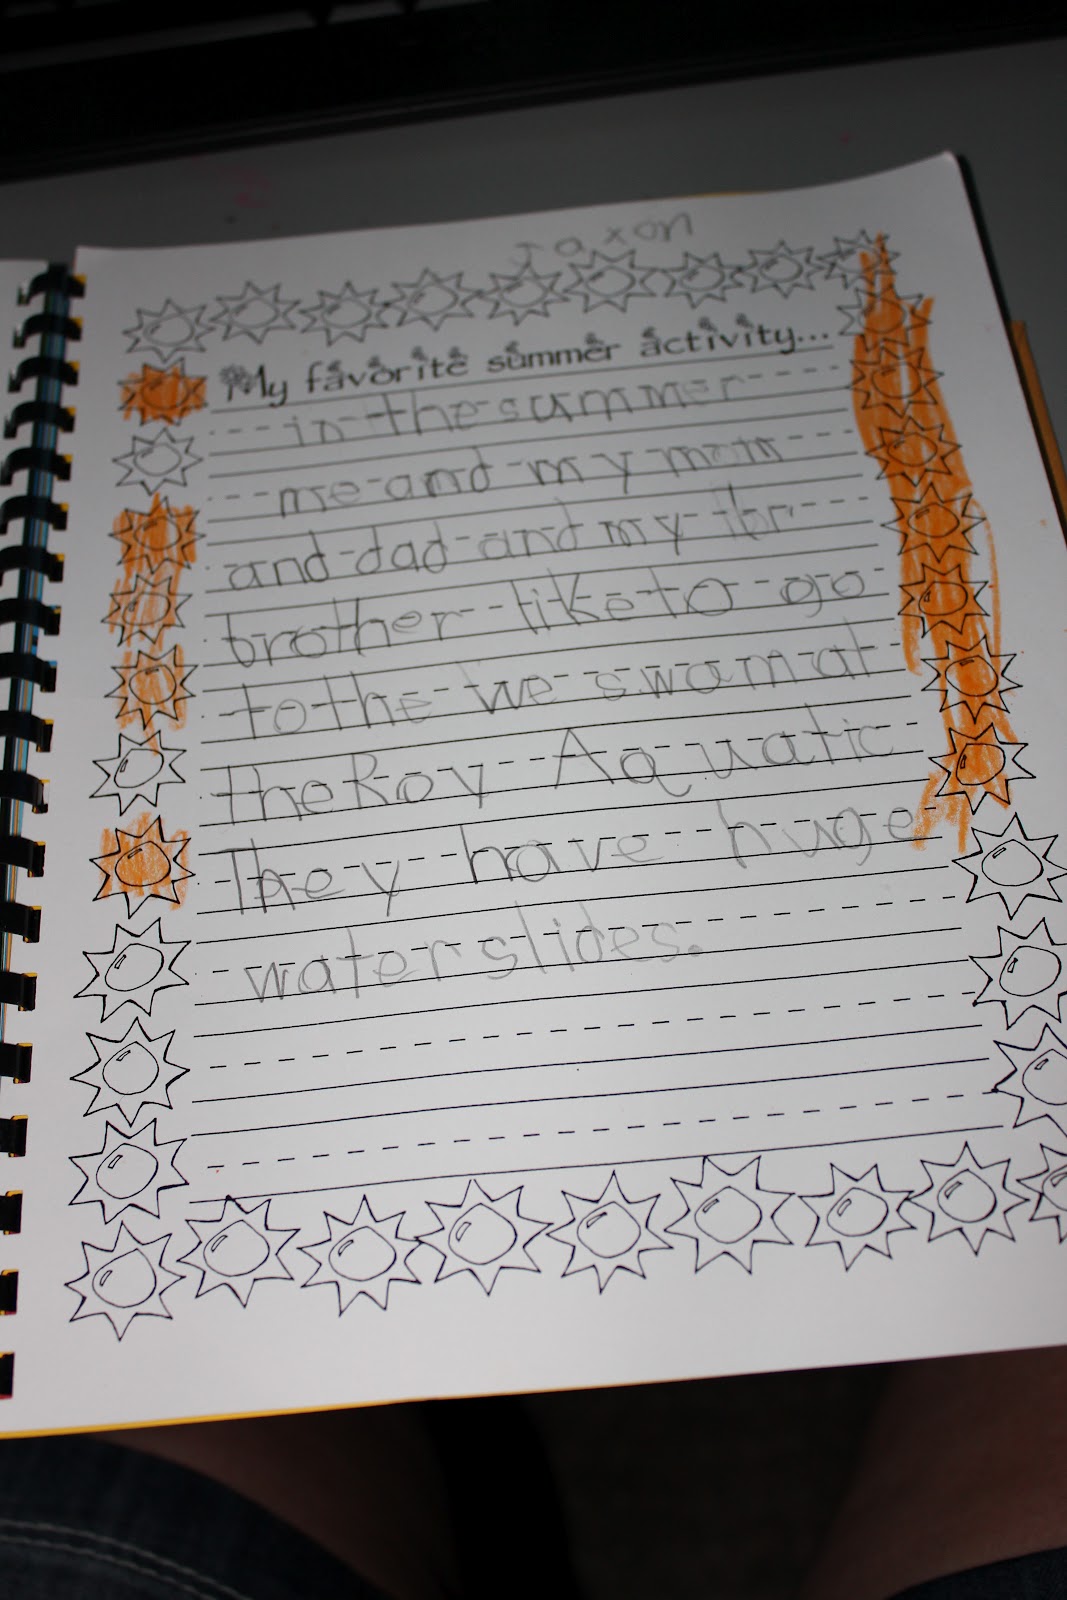 Jaxon
My favorite summer activity...
in the summer
me and my mom
and dad and my br
brother like to go
to the we swam at
the Roy Aquatic
They have huge
water slides.